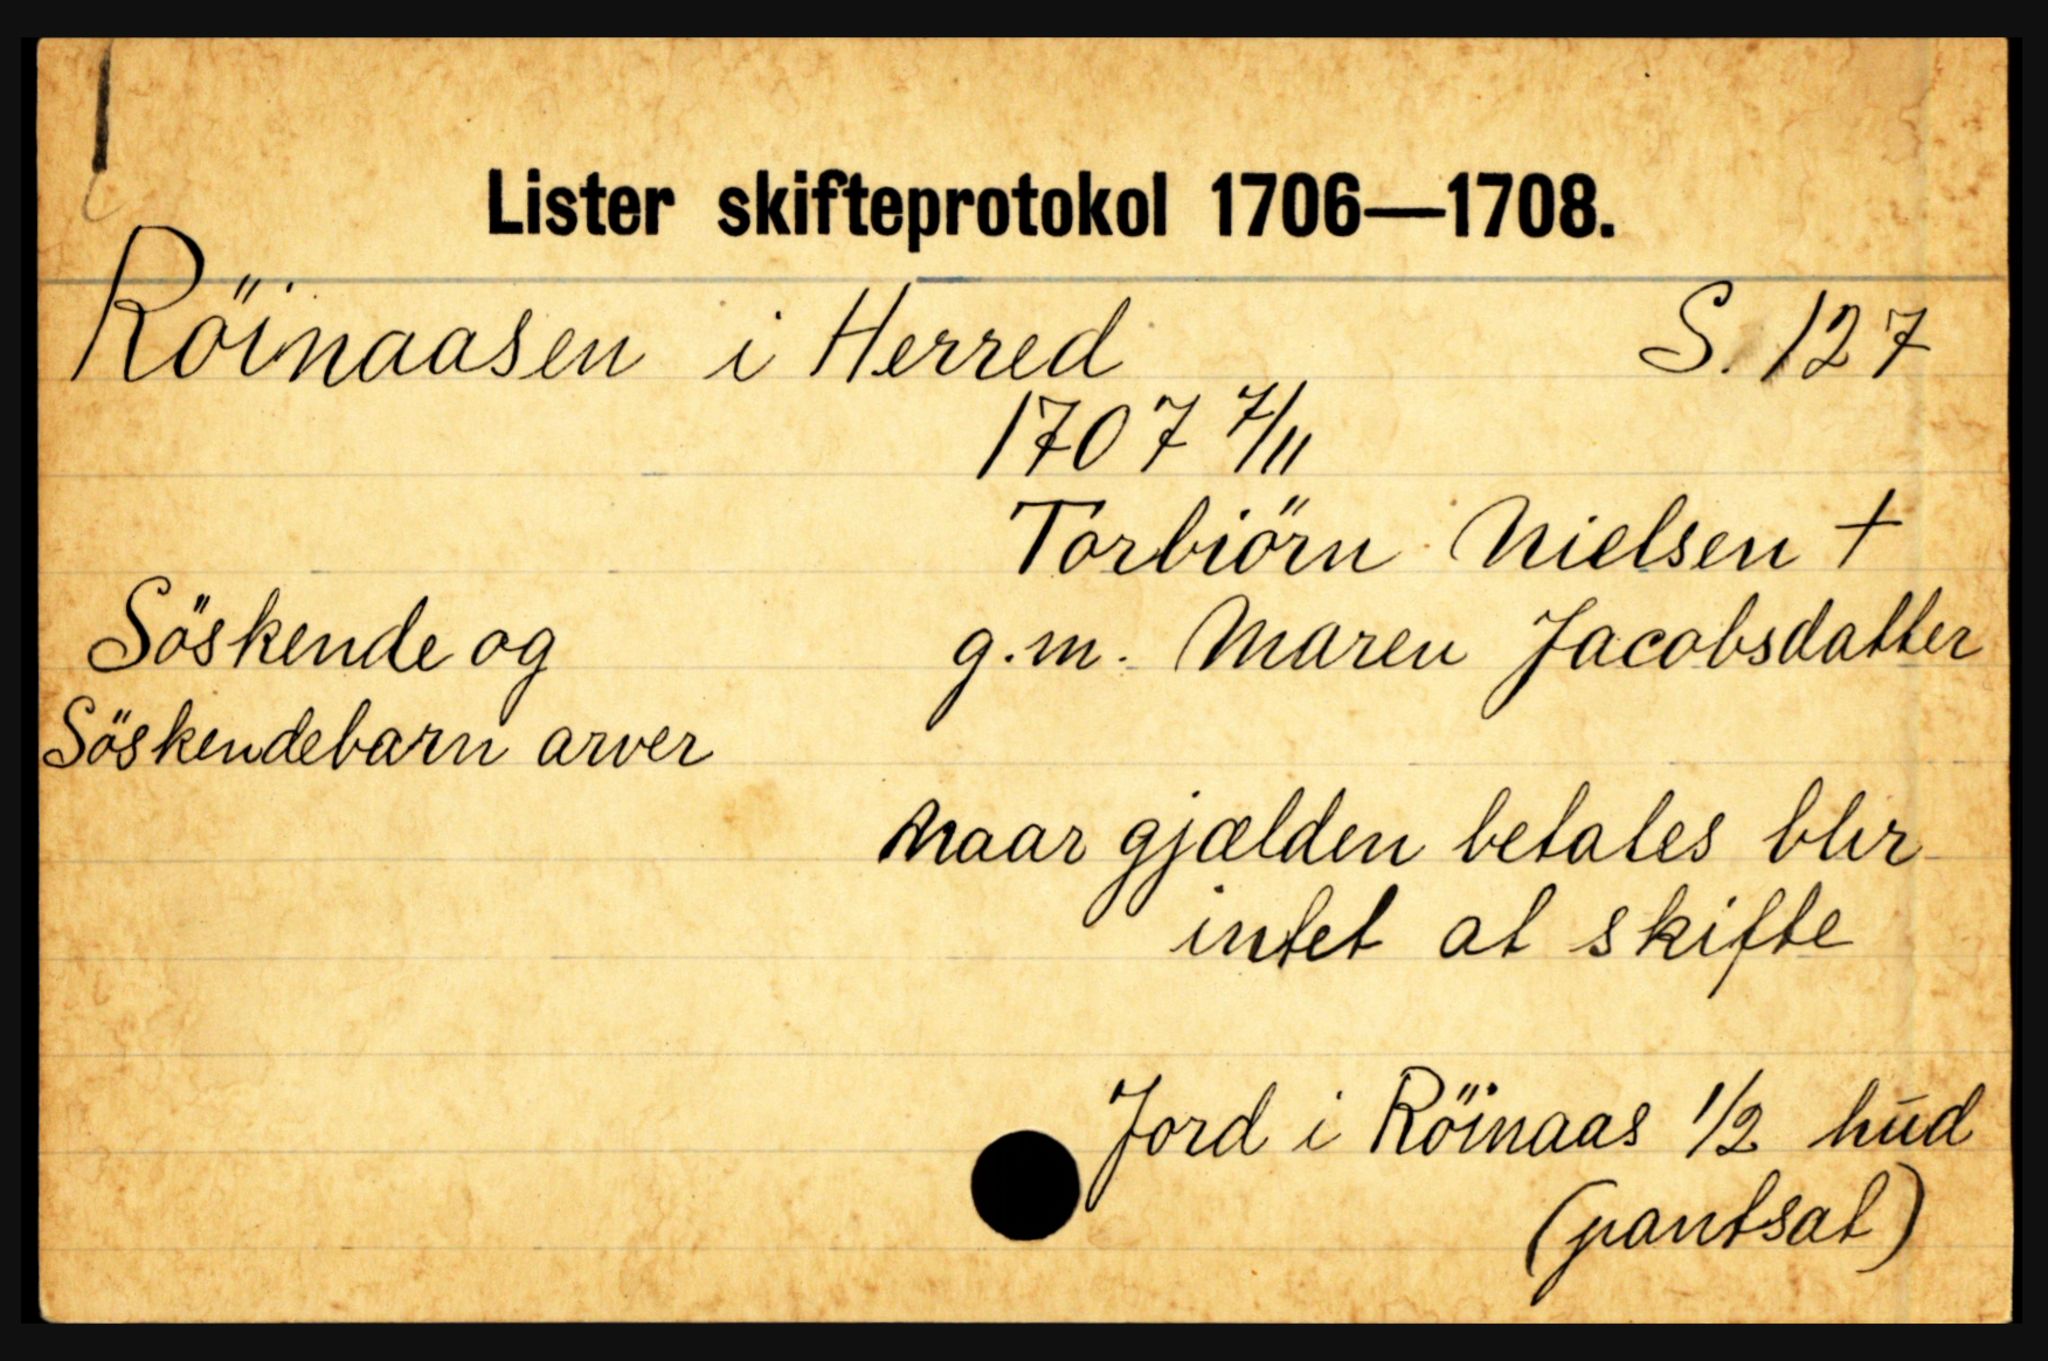 Lister skifteprotokol 1706—1708.
Röinaasen i Herred S. 127
1707 7/11
Torbiörn Nielsen +
Söskende og g.m. Maren Jacobsdatter
Söskendebarn arver
Naar gjælden betales blir
intet at skifte
Jord i Röinaas 1/2 hūd
(pantsat)